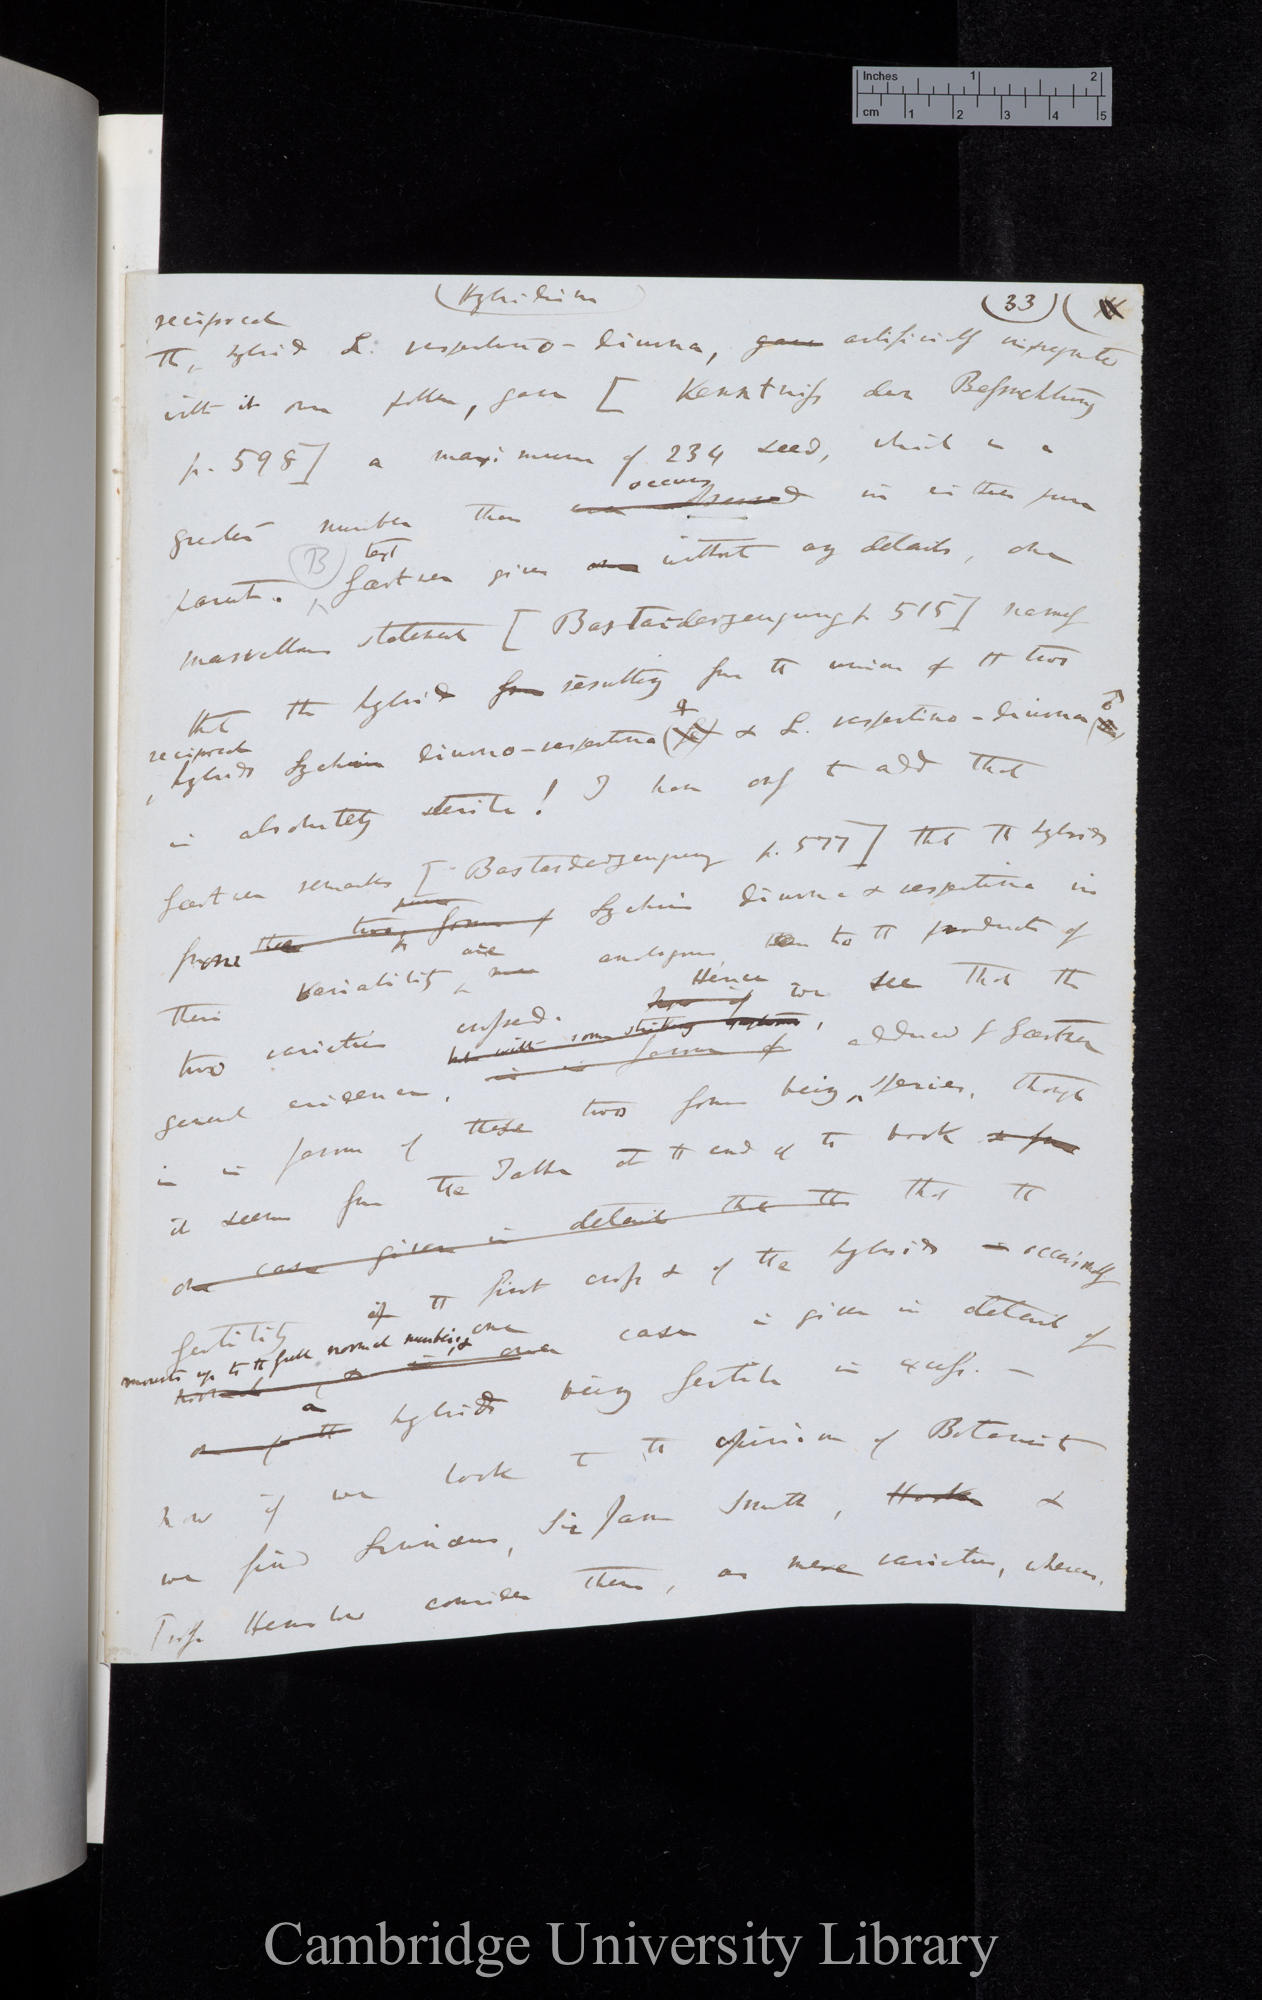 Inches 1 2
cm 1 2 3 4 5
(Hybridism) (33) (
reciprocal
The hybrid L. vespertino-diurna, gave artificially impregnated
with its own pollen, gave [ Kenntniss der Befruchtung
p. 598] a maximum of 234 seed, which is a
occurs
greater number than ever observed in either pure
(B) last
parent. Gærtner gives one without any details, one
marvellous statement [ Bastarderzeugung p 515] namely
that the hybrid from resulting from the union of the two
reciprocal
hybrids Lychnis diurno-vespertina (♀) & L. vespertino-diurna (♂)
is absolutely sterile! I have only to add that
Gærtner remarks [ Bastarderzeugung p. 577] that the hybrids
pure
from these two forms of Lychnis diurna & vespertina in
are
their variability, are analogous to the products of
Hence
two varieties crossed. we see that the
but with some striking
general evidence, is in favour of adduced by Gærtner
is in favour of these two forms being species, though
it seems from the Table at the end of the book & from
one case given in detail that the that the
fertility of the first cross & of the hybrids occasionally
mounts up to the full normal number, & one
& in one case is given in detail of
a
one of the hybrids being fertile in excess. —
Now if we look to the opinion of Botanists
we find Linnæus, Sir James Smith, Hooker &
Prof Henslow consider them, as mere varieties, whereas.
Cambridge University Library